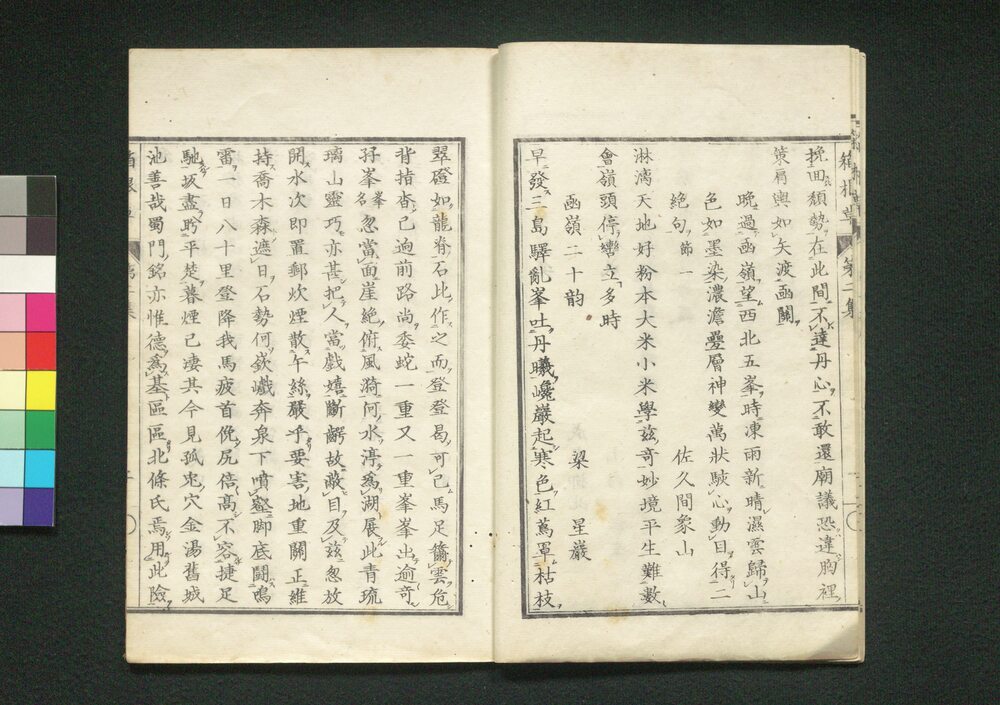 挽回頽勢在此間不達丹心不敢還廟議恐違胸裡
策肩輿如矢渡函關
晩過函嶺望西北五峯時凍雨新晴濕雲歸山
色如墨染濃澹疊層神變萬狀駭心動目得二
絶句節一
佐久間象山
淋漓天地好粉本大米小米學玆奇妙境平生難數
會嶺頭停轡立多時
函嶺二十韵
梁星巖
早發三島驛亂峯吐丹曦巉巖起寒色紅蔦罩枯枝
翠磴如龍脊石比作之而登登曷可已馬足籋雲危
背指杳已逈前路尚委蛇一重又一重峯峯出逾奇
孖峯峯名忽當面崖絶俯風漪何水渟爲湖展此青琉
璃山靈巧亦甚把人當戲嬉斷齶故蔽目及玆忽放
開水次即置郵炊煙散午絲嚴乎要害地重關正維
持喬木森遮日石勢何嶔巇奔泉下噴壑脚底鬪鳴
雷一日八十里登降我馬疲首俛尻倍高不容捷足
馳坂盡眄平楚暮煙已凄其今見孤兎穴金湯舊城
池善哉蜀門銘亦惟德爲基區區北條氏焉用此險